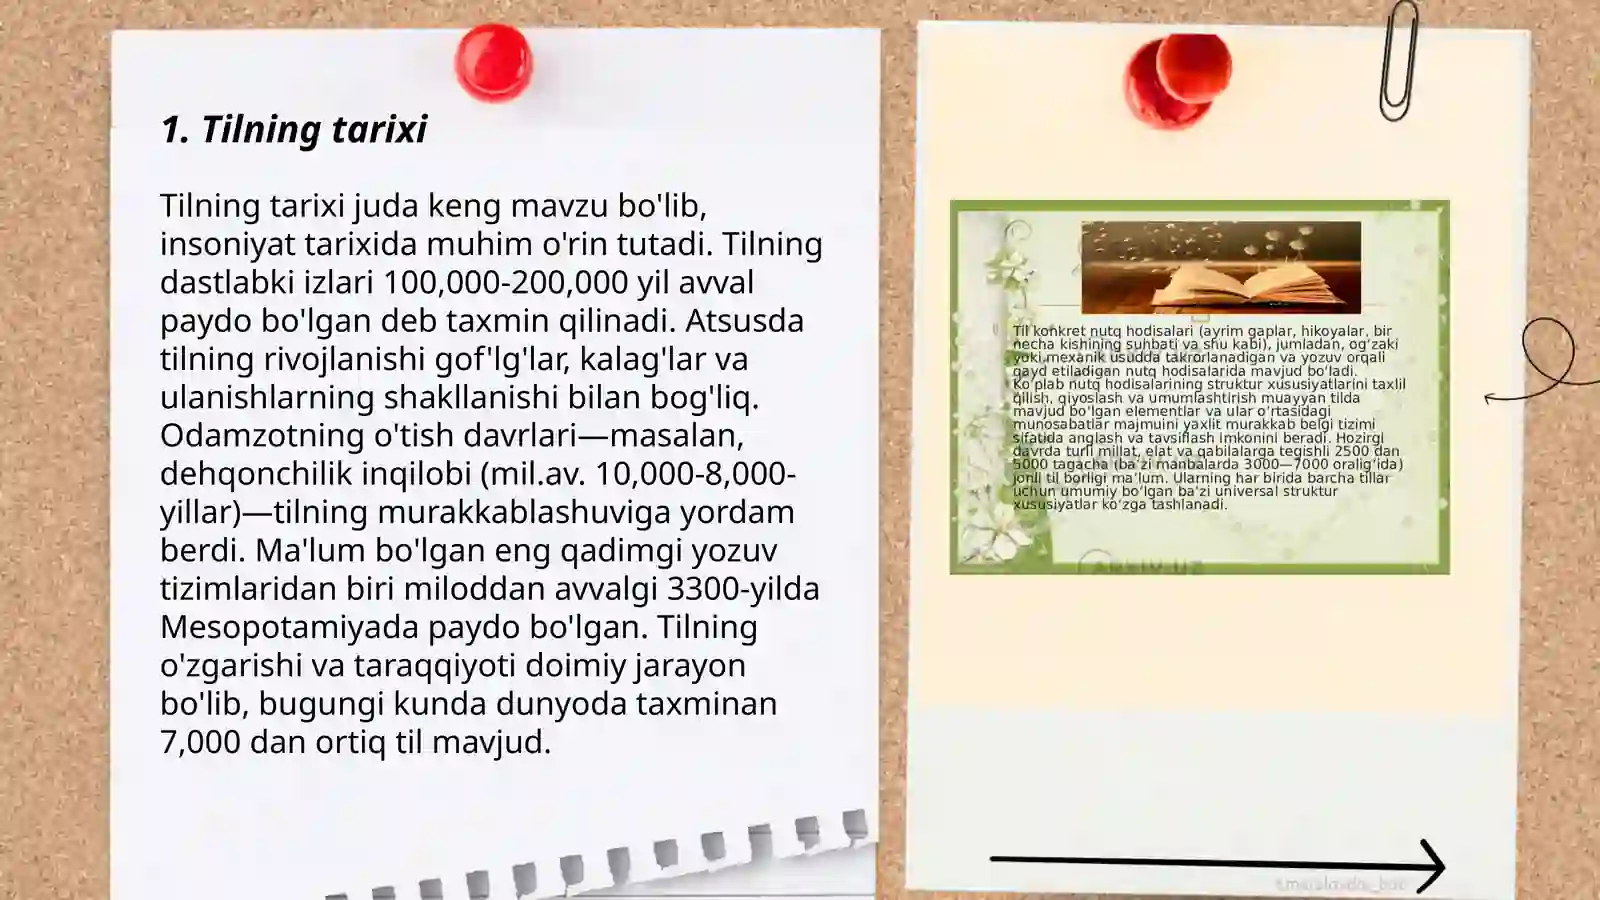 1. Tilning tarixi
Tilning tarixi juda keng mavzu bo'lib,
insoniyat tarixida muhim o'rin tutadi. Tilning
dastlabki izlari 100,000-200,000 yil avval
paydo bo'lgan deb taxmin qilinadi. Atsusda
tilning rivojlanishi gof'lg'lar, kalag'lar va
ulanishlarning shakllanishi bilan bog'liq.
Odamzotning o'tish davrlari—masalan,
dehqonchilik inqilobi (mil.av. 10,000-8,000-
yillar)—tilning murakkablashuviga yordam
berdi. Ma'lum bo'lgan eng qadimgi yozuv
tizimlaridan biri miloddan avvalgi 3300-yilda
Mesopotamiyada paydo bo'lgan. Tilning
o'zgarishi va taraqqiyoti doimiy jarayon
bo'lib, bugungi kunda dunyoda taxminan
7,000 dan ortiq til mavjud.
Til konkret nutq hodisalari (ayrim gaplar, hikoyalar, bir
necha kishining suhbati va shu kabi), jumladan, ogʻzaki
yoki mexanik usudda takrorlanadigan va yozuv orqali
qayd etiladigan nutq hodisalarida mavjud boʻladi.
Koʻplab nutq hodisalarining struktur xususiyatlarini taxlil
qilish, qiyoslash va umumlashtirish muayyan tilda
mavjud boʻlgan elementlar va ular oʻrtasidagi
munosabatlar majmuini yaxlit murakkab belgi tizimi
sifatida anglash va tavsiflash imkonini beradi. Hozirgi
davrda turli millat, elat va qabilalarga tegishli 2500 dan
5000 tagacha (baʼzi manbalarda 3000—7000 oraligʻida)
jonli til borligi maʼlum. Ularning har birida barcha tillar
uchun umumiy boʻlgan baʼzi universal struktur
xususiyatlar koʻzga tashlanadi.
ARXIV.UZ